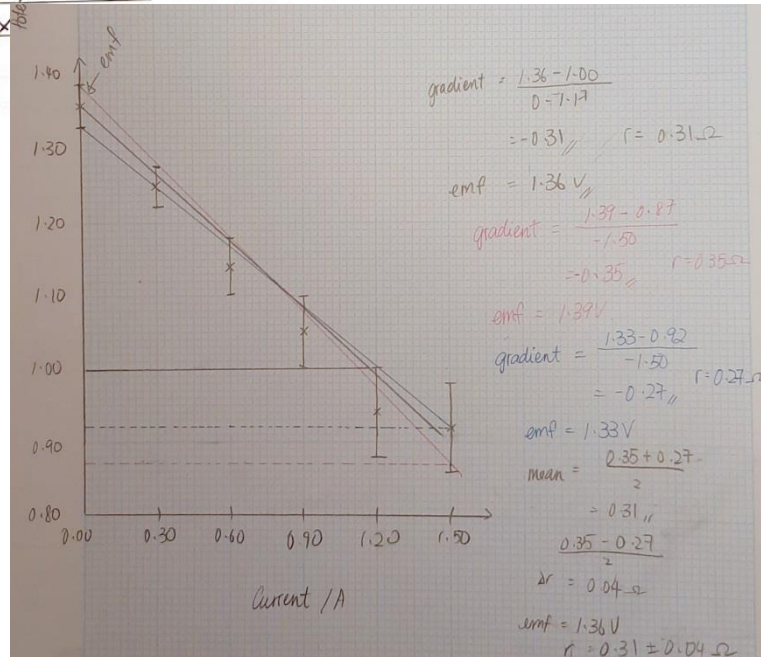 x
Pote
emf
1.40
1.30
1.20
1.10
1.00
0.90
0.80
0.00 0.30 0.60 0.90 1.20 1.50
Current /A
gradient = 1.36 - 1.00
0 - 1.17
= -0.31 r = 0.31 Ω
emf = 1.36 V
gradient = 1.39 - 0.87
-1.50
= -0.35 r = 0.35 Ω
emf = 1.39V
gradient = 1.33 - 0.92
-1.50
= -0.27 r = 0.27 Ω
emf = 1.33 V
mean = 0.35 + 0.27
2
= 0.31
0.35 - 0.27
2
Δr = 0.04 Ω
emf = 1.36 V
r = 0.31 ± 0.04 Ω